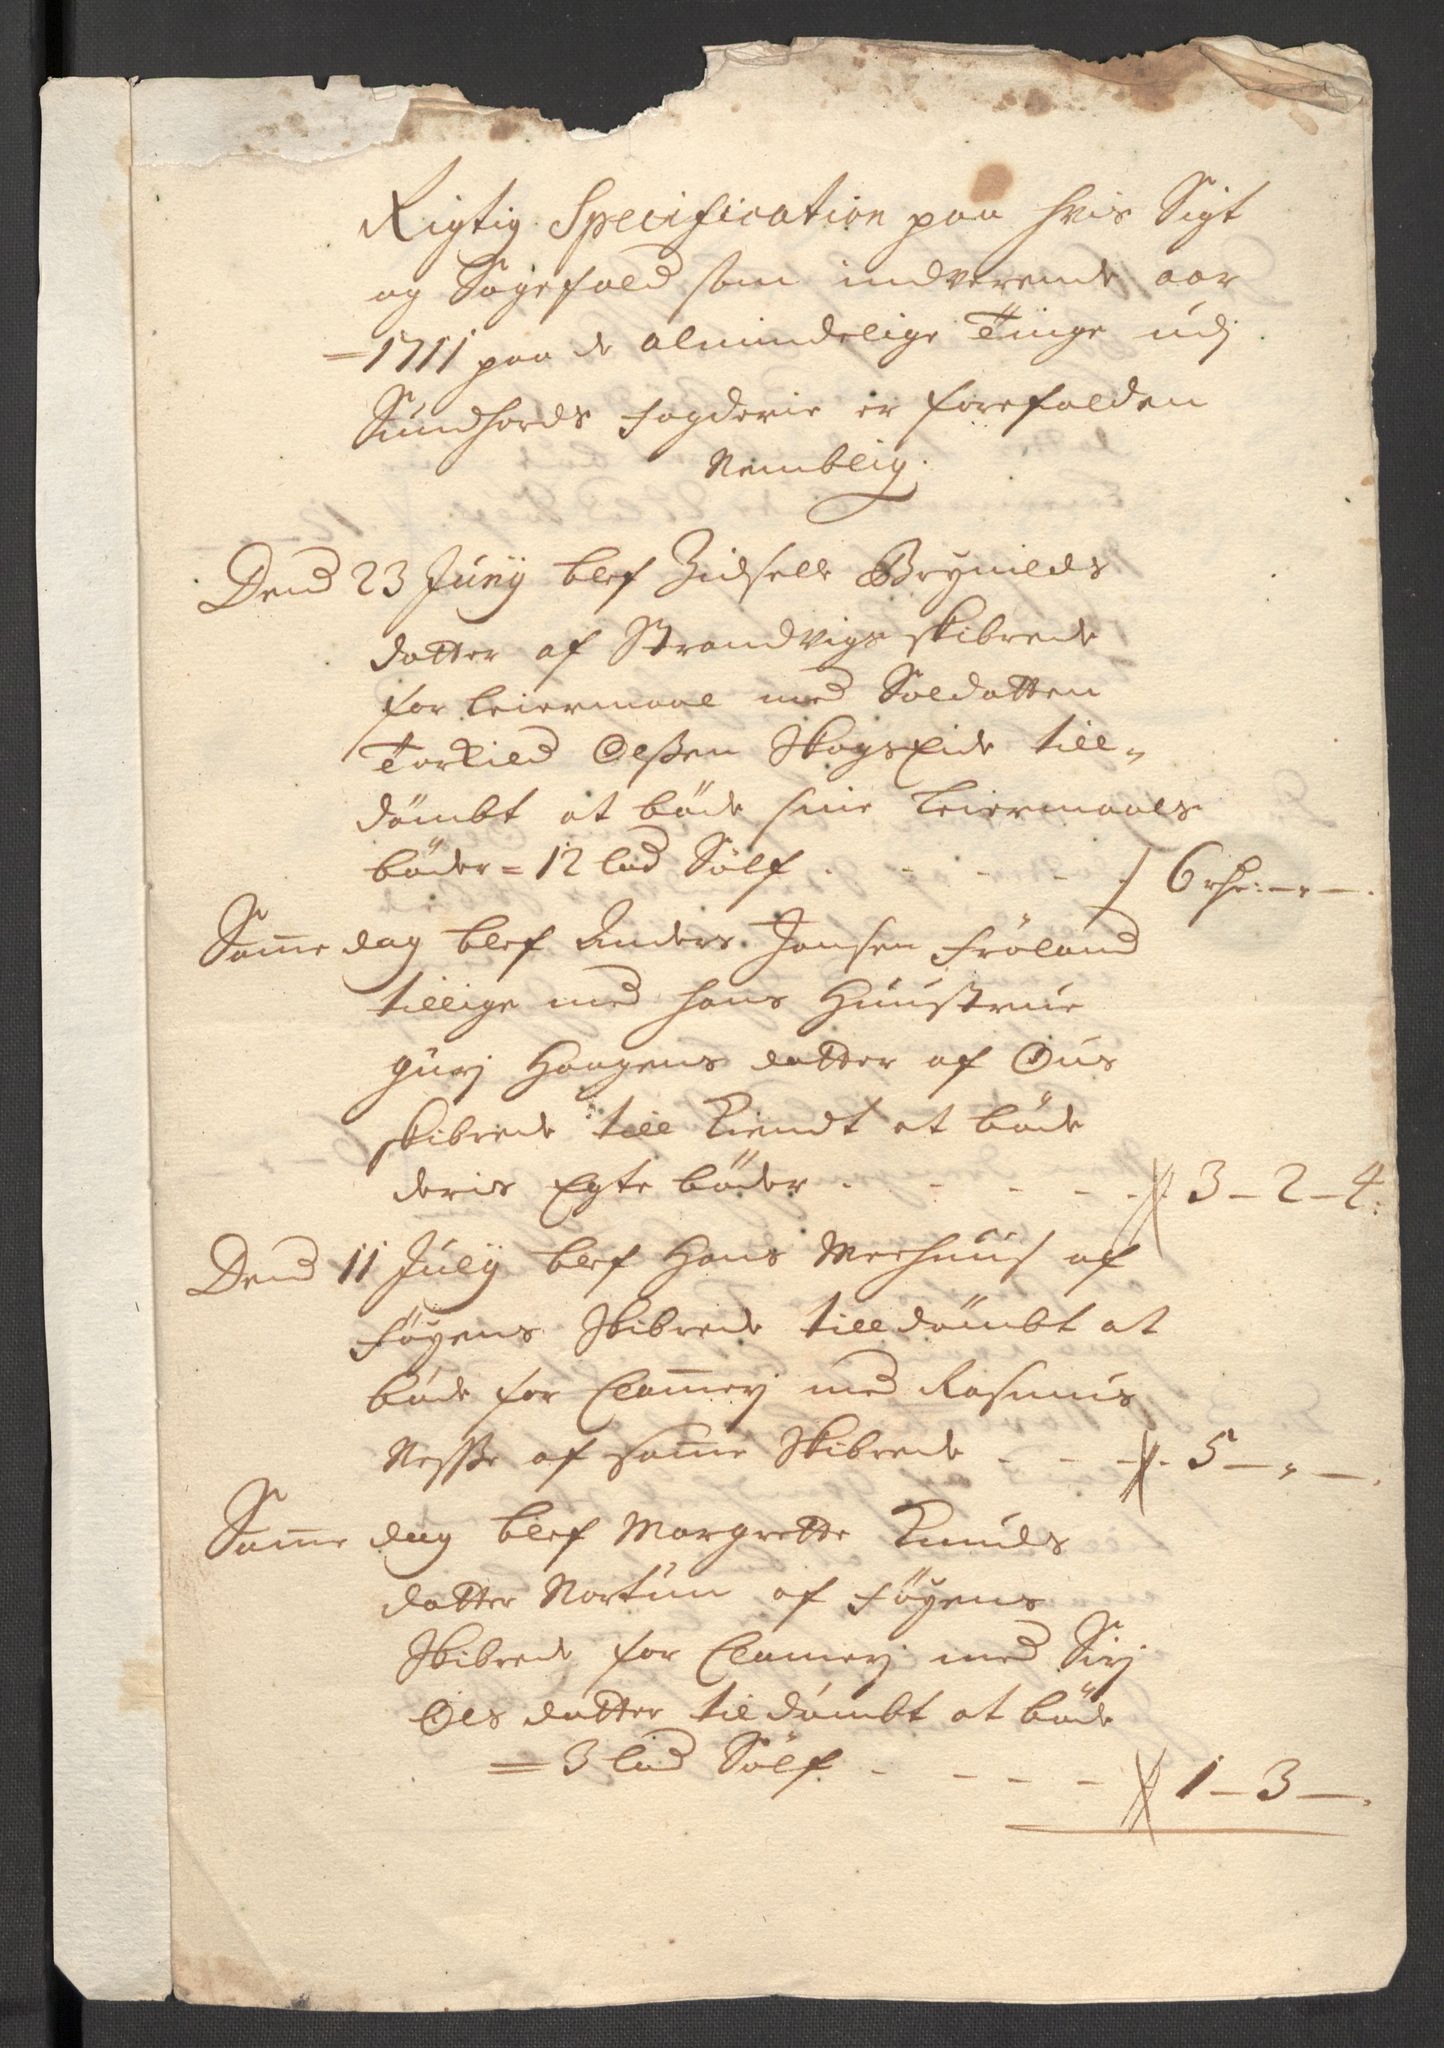 Rigtig Specification paa hvis Sigt
og Sagefald som indverende aar
1711 paa de almindelige Tinge udj
Sundhords fogderie er forefalden
Nemblig.
Dend 23 Junij blef Zidselle Brynilds
datter af Strandvigs skibrede
for leiermaal med Soldatten
Torkild Olsen Skogseide till„
dömbt at böde sine leiermaals
böder = 12 lod Sölf . - - - - 6 rdr: — „ —.
Same dag blef Anders Jansen Fröland
tillige med hans Huustrue
gurj Haagens datter af Ous
skibrede till kiendt at böde
deris Egte böder . - - - - . 3 – 2 – 4:
Dend 11 Julij blef Hans Mehuus af
Föyens Skibrede tilldömbt at
böde for Clamerj med Rasmus
Nesse af same Skibrede - - - . 5 – „ –.
Same dag blef Margrette Knuds
datter Nortun af Föyens
Skibrede for Clamerj med Sirj
Ols datter tildömbt at böde
= 3 lod Sölf . - - - - 1 – 3 –.